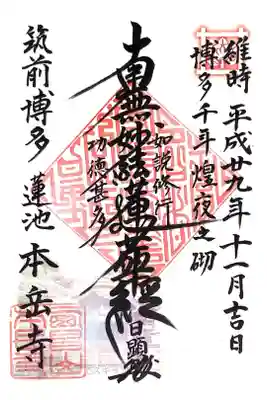 維時 平成廿九年十一月吉日
博多千年煌夜之砌
如説修行
南無妙法蓮華経
功徳甚多
日顕
筑前博多 蓮池 本岳寺